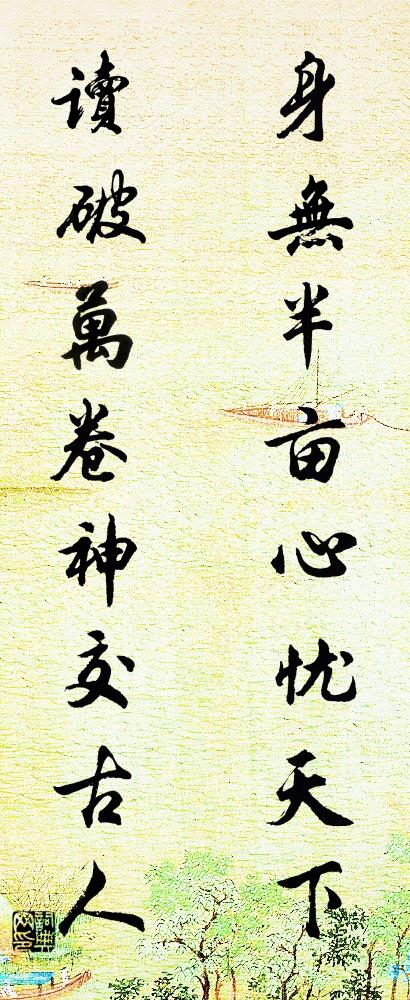 身無半亩心忧天下
讀破萬卷神交古人